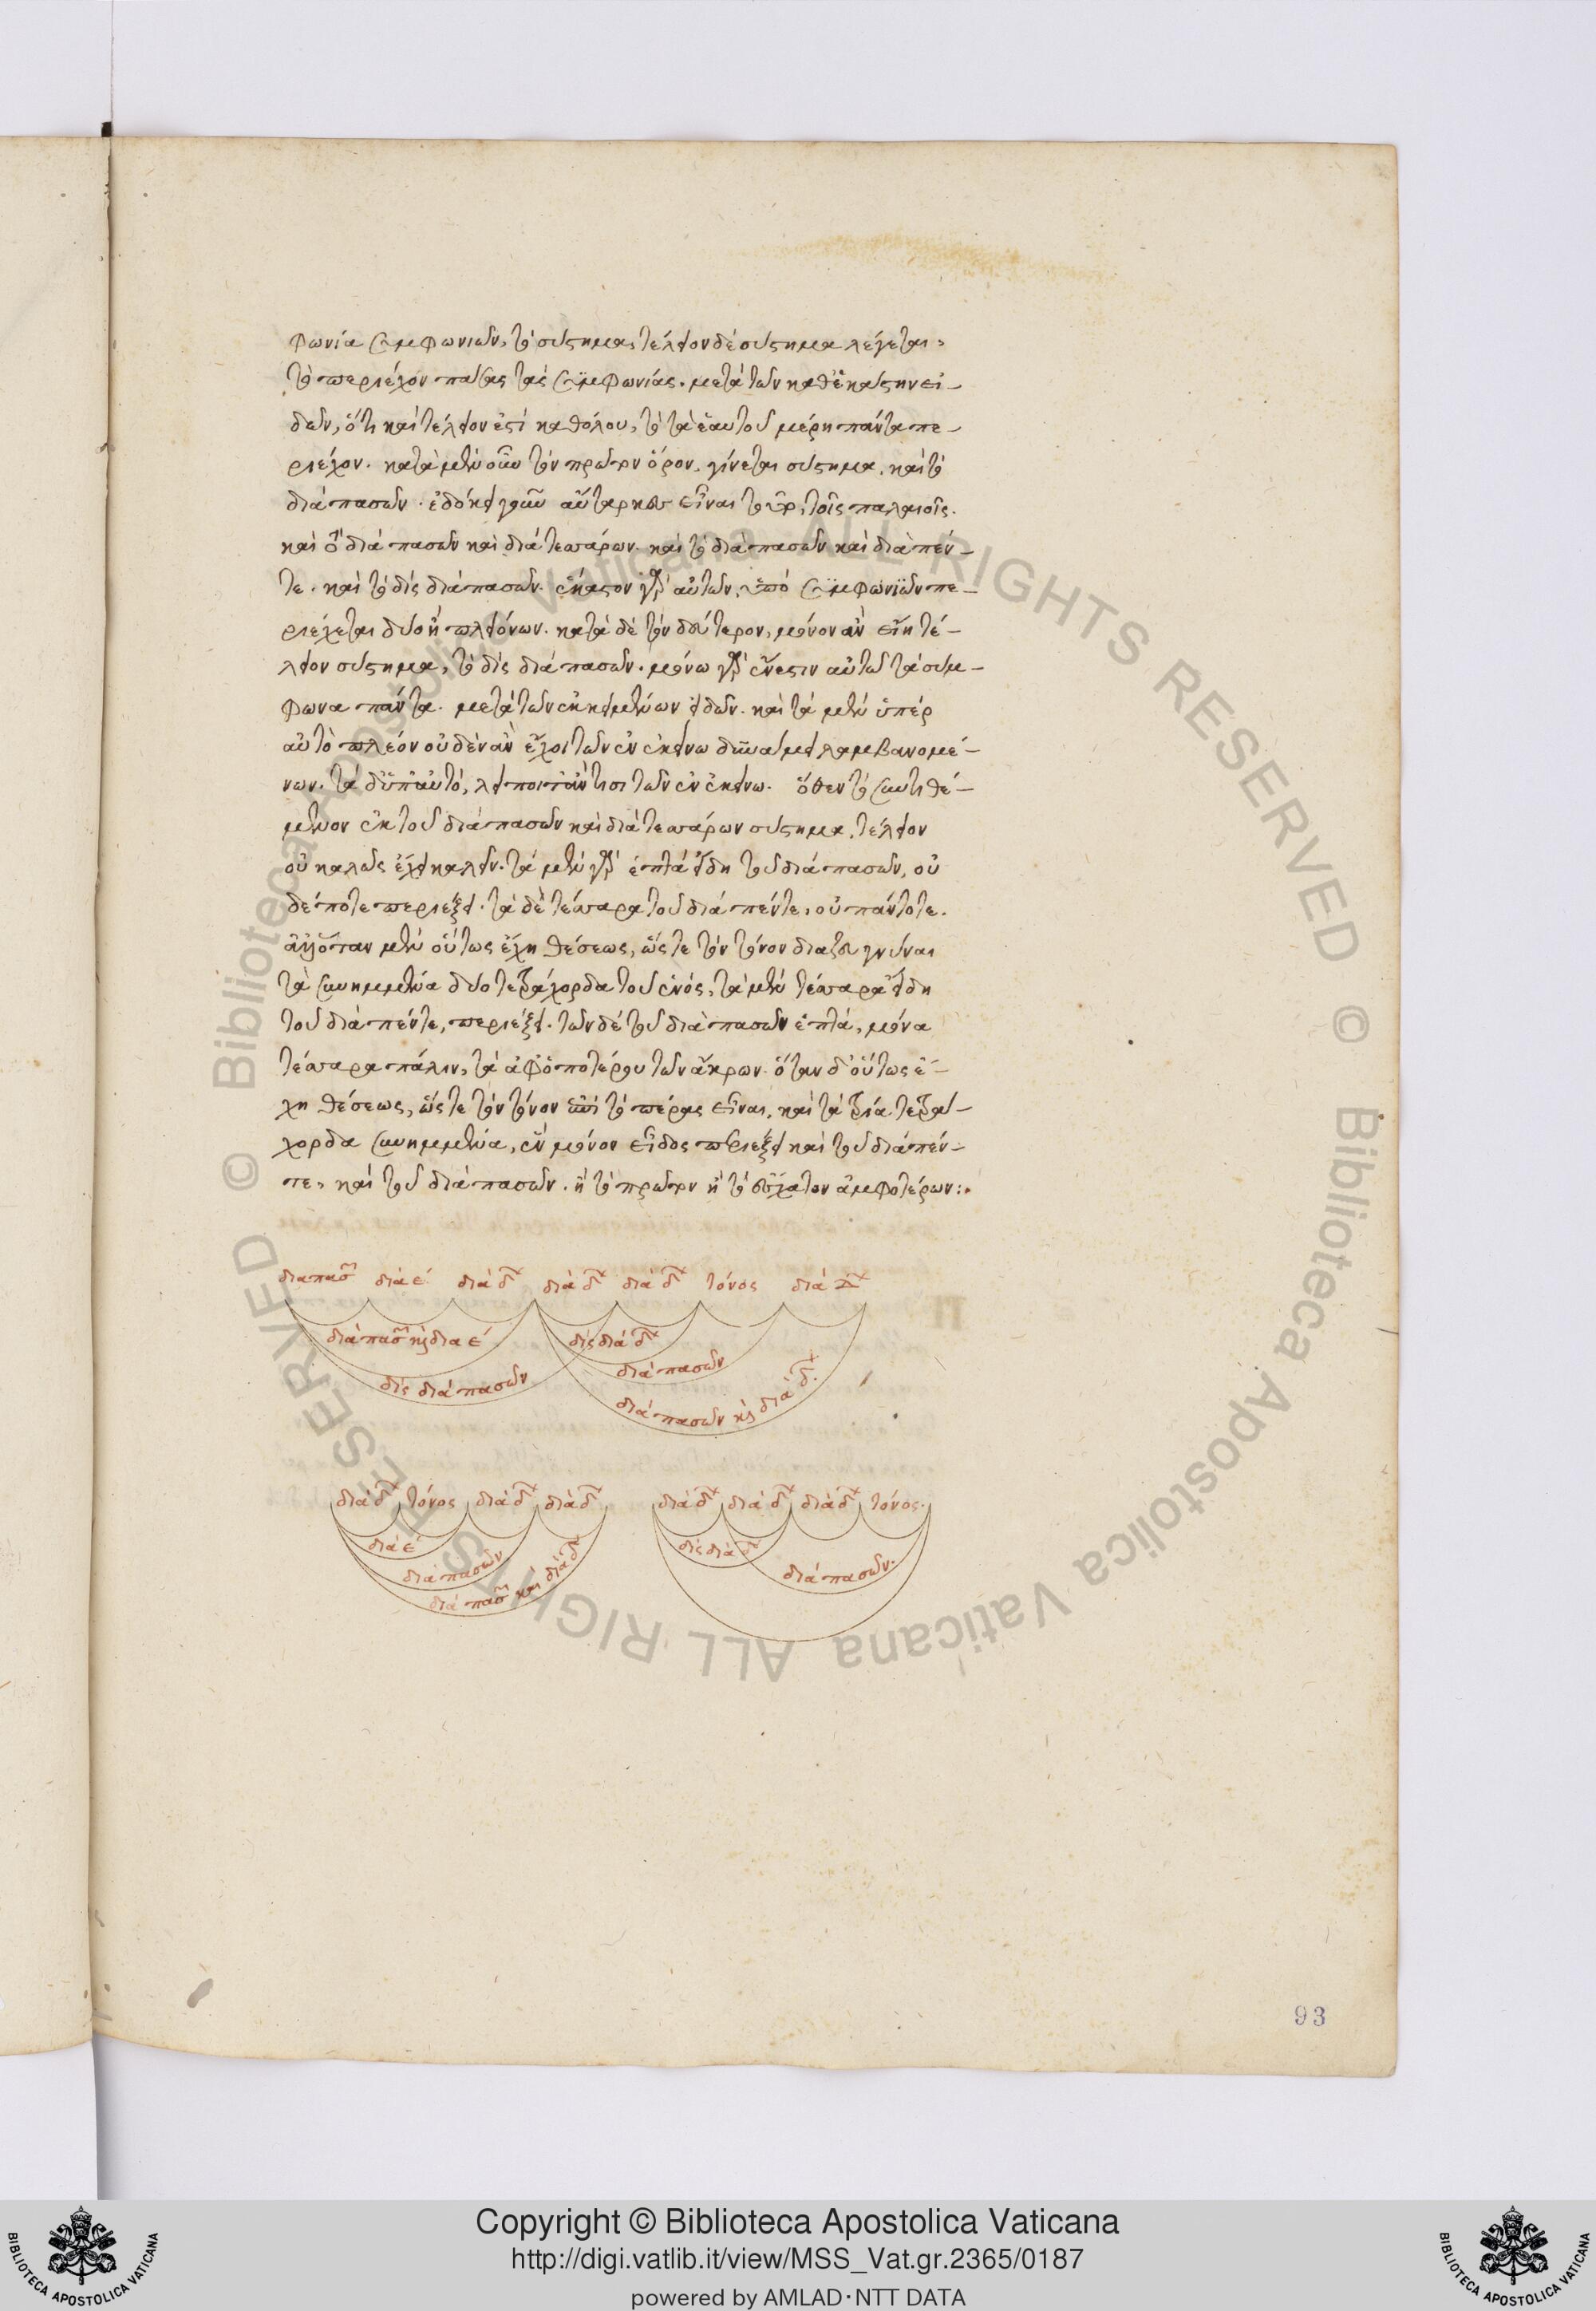 φωνία συμφωνιῶν, τὸ σύστημα, τέλειον δὲ σύστημα λέγεται,
τὸ περιέχον πάσας τὰς συμφωνίας. μετὰ τῶν καθ' ἑκάστην εἰ-
δῶν, ὅτι καὶ τέλειον ἐστὶ καθόλου, τὸ τὰ ἑαυτοῦ μέρη πάντα πε-
ριέχον. κατὰ μὲν οὖν τὸν πρῶτον ὅρον, γίνεται σύστημα, καὶ τὸ
διὰ πασῶν. ἐδόκει γοῦν αὔταρκες εἶναι τοῖς παλαιοῖς.
καὶ διὰ πασῶν καὶ διὰ τεσσάρων. καὶ τὸ διὰ πασῶν καὶ διὰ πέν-
τε. καὶ τὸ δὶς διὰ πασῶν. ἕκαστον γὰρ αὐτῶν, ὑπὸ συμφωνιῶν πε-
ριέχεται δύο ἢ πλειόνων. κατὰ δὲ τὸν δεύτερον, μόνον ἂν εἴη τέ-
λειον σύστημα, τὸ δὶς διὰ πασῶν. μόνω γὰρ ἔνεστιν αὐτῶ τὰ σύμ-
φωνα πάντα. μετὰ τῶν ἐκκειμένων εἰδῶν. καὶ τὰ μὲν ὑπὲρ
αὐτὸ πλέον οὐδὲν ἂν ἔχοι τῶν ἐν ἐκείνω δυνάμει λαμβανομέ-
νων. τὰ δ' ὑπ' αὐτό, λείποιτο ἄν τισι τῶν ἐν ἐκείνω. ὅθεν τὸ συντιθέ-
μενον ἐκ τοῦ διὰ πασῶν καὶ διὰ τεσσάρων σύστημα, τέλειον
οὐ καλῶς ἔχει καλεῖν. τὰ μὲν γὰρ ἑπτὰ εἴδη τοῦ διὰ πασῶν, οὐ
δέποτε περιέξει. τὰ δὲ τέσσαρα τοῦ διὰ πέντε, οὐ πάντοτε.
ἀλλ' ὅταν μὲν οὕτως ἔχη θέσεως, ὥστε τὸν τόνον διαζευγνύναι
τὰ συνημμένα δύο τετράχορδα τοῦ ἑνός, τὰ μὲν τέσσαρα εἴδη
τοῦ διὰ πέντε, περιέξει. τῶν δὲ τοῦ διὰ πασῶν ἑπτά, μόνα
τέσσαρα πάλιν, τὰ ἀφ' ὁποτέρου τῶν ἄκρων. ὅταν δ' οὕτως ἔ-
χη θέσεως, ὥστε τὸν τόνον ἐπὶ τὸ πέρας εἶναι, καὶ τὰ τρία τετρά-
χορδα συνημμένα, ἓν μόνον εἶδος περιέξει καὶ τοῦ διὰ πέν-
τε, καὶ τοῦ διὰ πασῶν. ἢ τὸ πρῶτον ἢ τὸ ἔσχατον ἀμφοτέρων:.
διαπασ διὰ ε΄ διὰ δ διὰ δ διὰ δ τόνος διὰ δ
διὰ πασ καὶ δια ε΄ δὶς διὰ δ
δὶς διὰ πασῶν διὰ πασῶν
διὰ πασῶν καὶ διὰ δ.
διὰ δ τόνος διὰ δ διὰ δ διὰ δ διὰ δ διὰ δ τόνος.
διὰ ε΄ δὶς διὰ δ
διὰ πασῶν διὰ πασῶν.
διὰ πασ καὶ διὰ δ
93
Copyright © Biblioteca Apostolica Vaticana
http://digi.vatlib.it/view/MSS_Vat.gr.2365/0187
powered by AMLAD·NTT DATA
BIBLIOTECA APOSTOLICA VATICANA
BIBLIOTECA APOSTOLICA VATICANA
© Biblioteca Apostolica Vaticana ALL RIGHTS RESERVED © Biblioteca Apostolica Vaticana ALL RIGHTS RESERVED